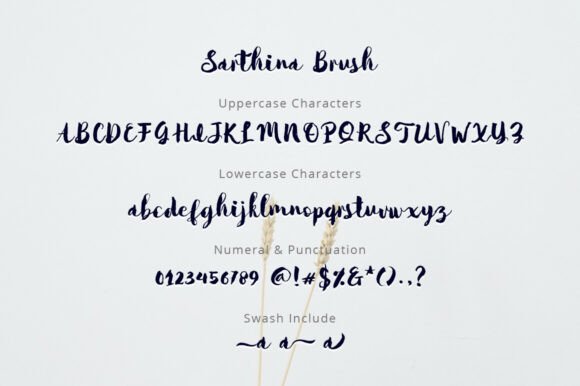 Sarthina Brush
Uppercase Characters
ABCDEFGHIJKLMNOPQRSTUVWXYZ
Lowercase Characters
abcdefghijklmnopqrstuvwxyz
Numeral & Punctuation
0123456789 @!#$%&*().,?
Swash Include
a a a